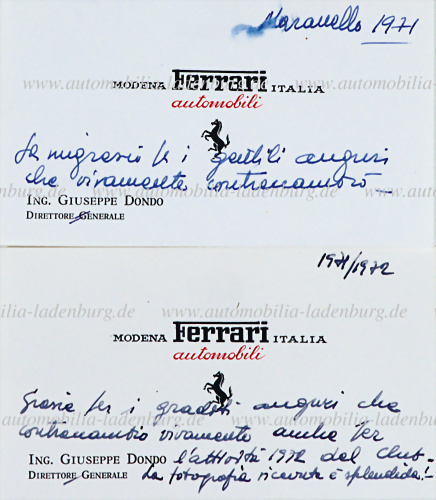 Maranello 1971
www.automobilia-ladenburg.de
MODENA Ferrari ITALIA
automobili
La ringrazio per i gentili auguri
che vivamente contraccambio
www.automobilia-ladenburg.de
ING. GIUSEPPE DONDO
DIRETTORE GENERALE
1971/1972
www.automobilia-ladenburg.de
MODENA Ferrari ITALIA
automobili
Grazie per i graditi auguri che
www.automobilia-ladenburg.de
contraccambio vivamente anche per
ING. GIUSEPPE DONDO l'attività 1972 del Club.-
DIRETTORE GENERALE La fotografia ricevuta è splendida!-